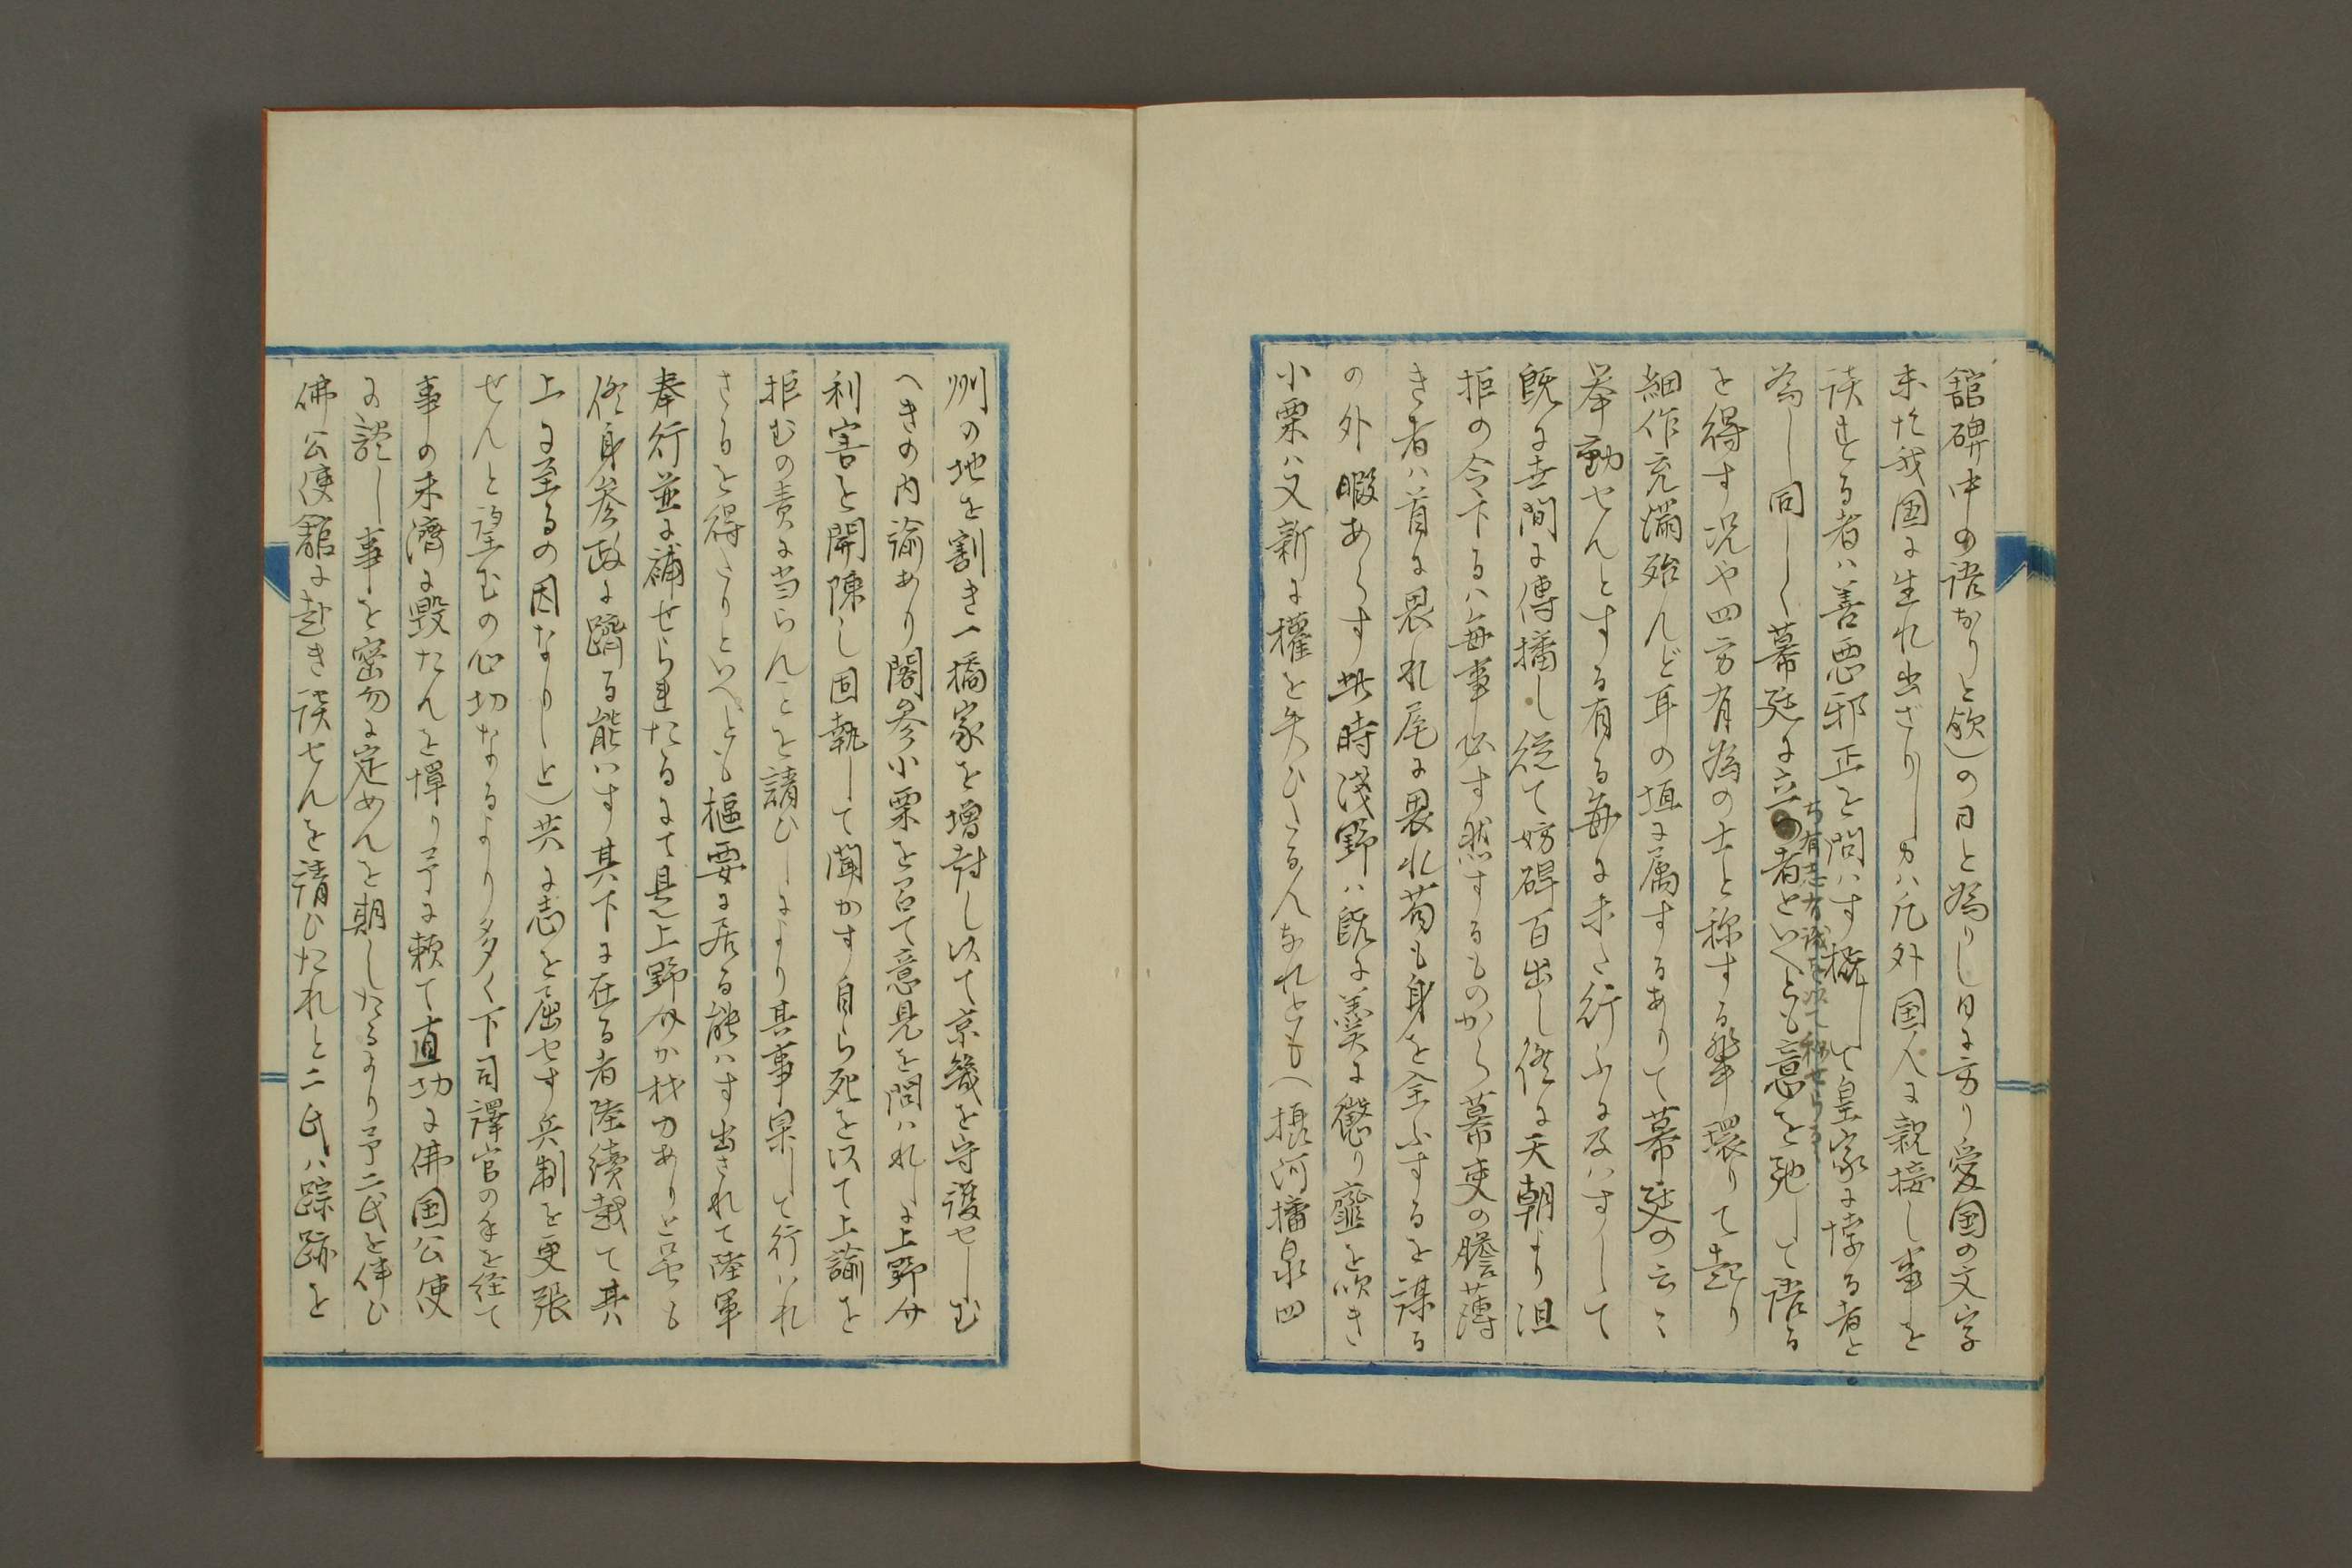 舘碑中の語なりと欤)の日と為りし日に方り愛国の文字
未た我国に生れ出ざりしかハ凡外国人に親接し事を
談ずる者ハ善悪邪正を問ハす概して皇家に悖る者と
為し同しく幕廷に立の者といへとも意を弛して語る
ち有志有識を以て称せらる
を得す况や四方有為の士と称する輩環りて起り
細作充満殆んど耳の垣に属するありて幕廷の云々
挙動せんとする有る毎に未た行ふに及ハすして
既に世間に傳播し従て妨碍百出し俗に天朝より沮
拒の令下るハ毎事必す然するものから幕吏の膽薄
き者ハ首に畏れ尾に畏れ苟も身を全ふするを謀る
の外暇あらす此時浅野ハ既に羹に懲り韲を吹き
小栗ハ又新に権を失ひたる人なれとも(摂河播泉四
州の地を割き一橋家を増封し以て京畿を守護せしむ
へきの内諭あり閣参小栗を召て意見を問ハれしに上野介
利害を開陳し固執して聞かす自ら死を以て上諭を
拒むの責に当らんことを請ひしにより其事果して行ハれ
さるを得たりといへとも枢要に居る能ハす出されて陸軍
奉行並に補せられたるにて是上野介か材力ありと虽も
終身参政に躋る能ハす其下に在る者陸續越て其
上に至るの因なりしと)共に志を屈せす兵制を更張
せんと望むの心切なるより多く下司譯官の手を経て
事の未濟に毀たんを憚り予に頼て直切に佛国公使
に謀し事を密勿に定めんを期したるより予二氏を伴ひ
佛公使舘に赴き談せんを請ひたれと二氏ハ踪跡を